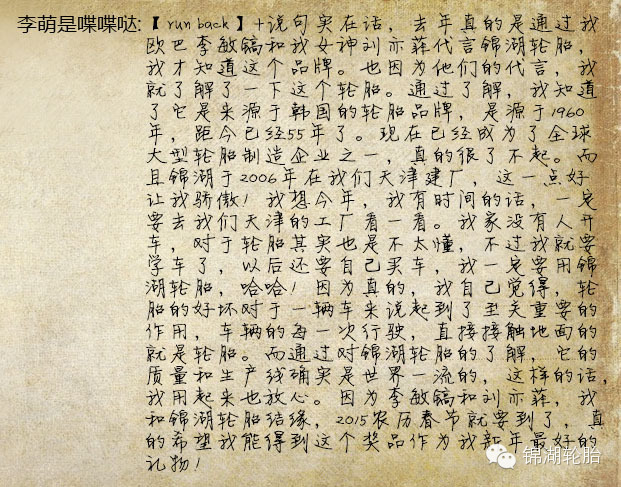 李萌是喋喋哒:【run back】+说句实在话，去年真的是通过我
欧巴李敏镐和我女神刘亦菲代言锦湖轮胎，
我才知道这个品牌。也因为他们的代言，我
就了解了一下这个轮胎。通过了解，我知道
了它是来源于韩国的轮胎品牌，是源于1960
年，距今已经55年了。现在已经成为了全球
大型轮胎制造企业之一，真的很了不起。而
且锦湖于2006年在我们天津建厂，这一点好
让我骄傲！我想今年，我有时间的话，一定
要去我们天津的工厂看一看。我家没有人开
车，对于轮胎其实也是不太懂，不过我就要
学车了，以后还要自己买车，我一定要用锦
湖轮胎，哈哈！因为真的，我自己觉得，轮
胎的好坏对于一辆车来说起到了至关重要的
作用，车辆的每一次行驶，直接接触地面的
就是轮胎。而通过对锦湖轮胎的了解，它的
质量和生产线确实是世界一流的，这样的话，
我用起来也放心。因为李敏镐和刘亦菲，我
和锦湖轮胎结缘，2015农历春节就要到了，真
的希望我能得到这个奖品作为我新年最好的
礼物！
锦湖轮胎